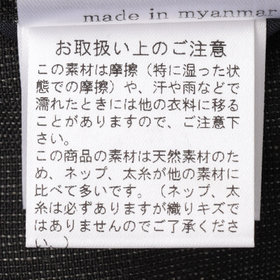 made in myanmar
お取扱い上のご注意
この素材は摩擦（特に湿った状
態での摩擦）や、汗や雨などで
濡れたときには他の衣料に移る
ことがありますので、ご注意下
さい。
この商品の素材は天然素材のた
め、ネップ、太糸が他の素材に
比べて多いです。（ネップ、太
糸は必ずありますが織りキズで
はありませんのでご了承くださ
い。）